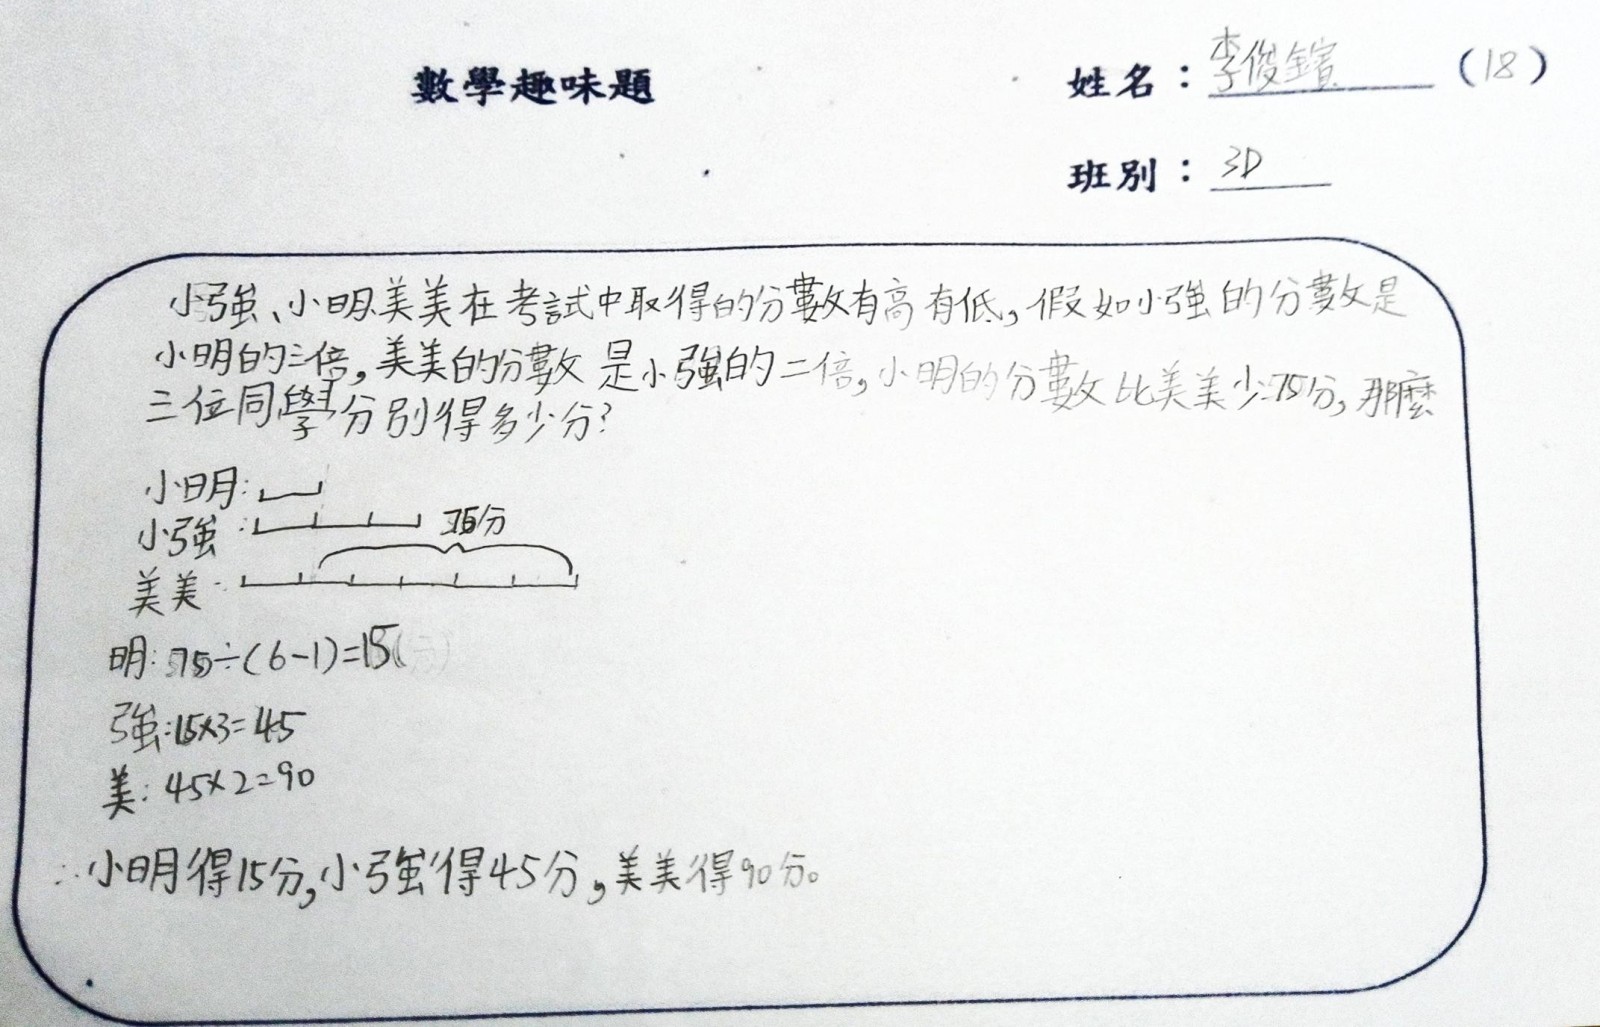 數學趣味題
姓名：李俊鑌（18）
班別：3D
小強、小明、美美在考試中取得的分數有高有低，假如小強的分數是
小明的三倍，美美的分數是小強的二倍，小明的分數比美美少75分，那麼
三位同學分別得多少分？
小明：
小強：
75分
美美：
明：75÷(6-1)=15(分)
強：15×3=45
美：45×2=90
∴小明得15分，小強得45分，美美得90分。